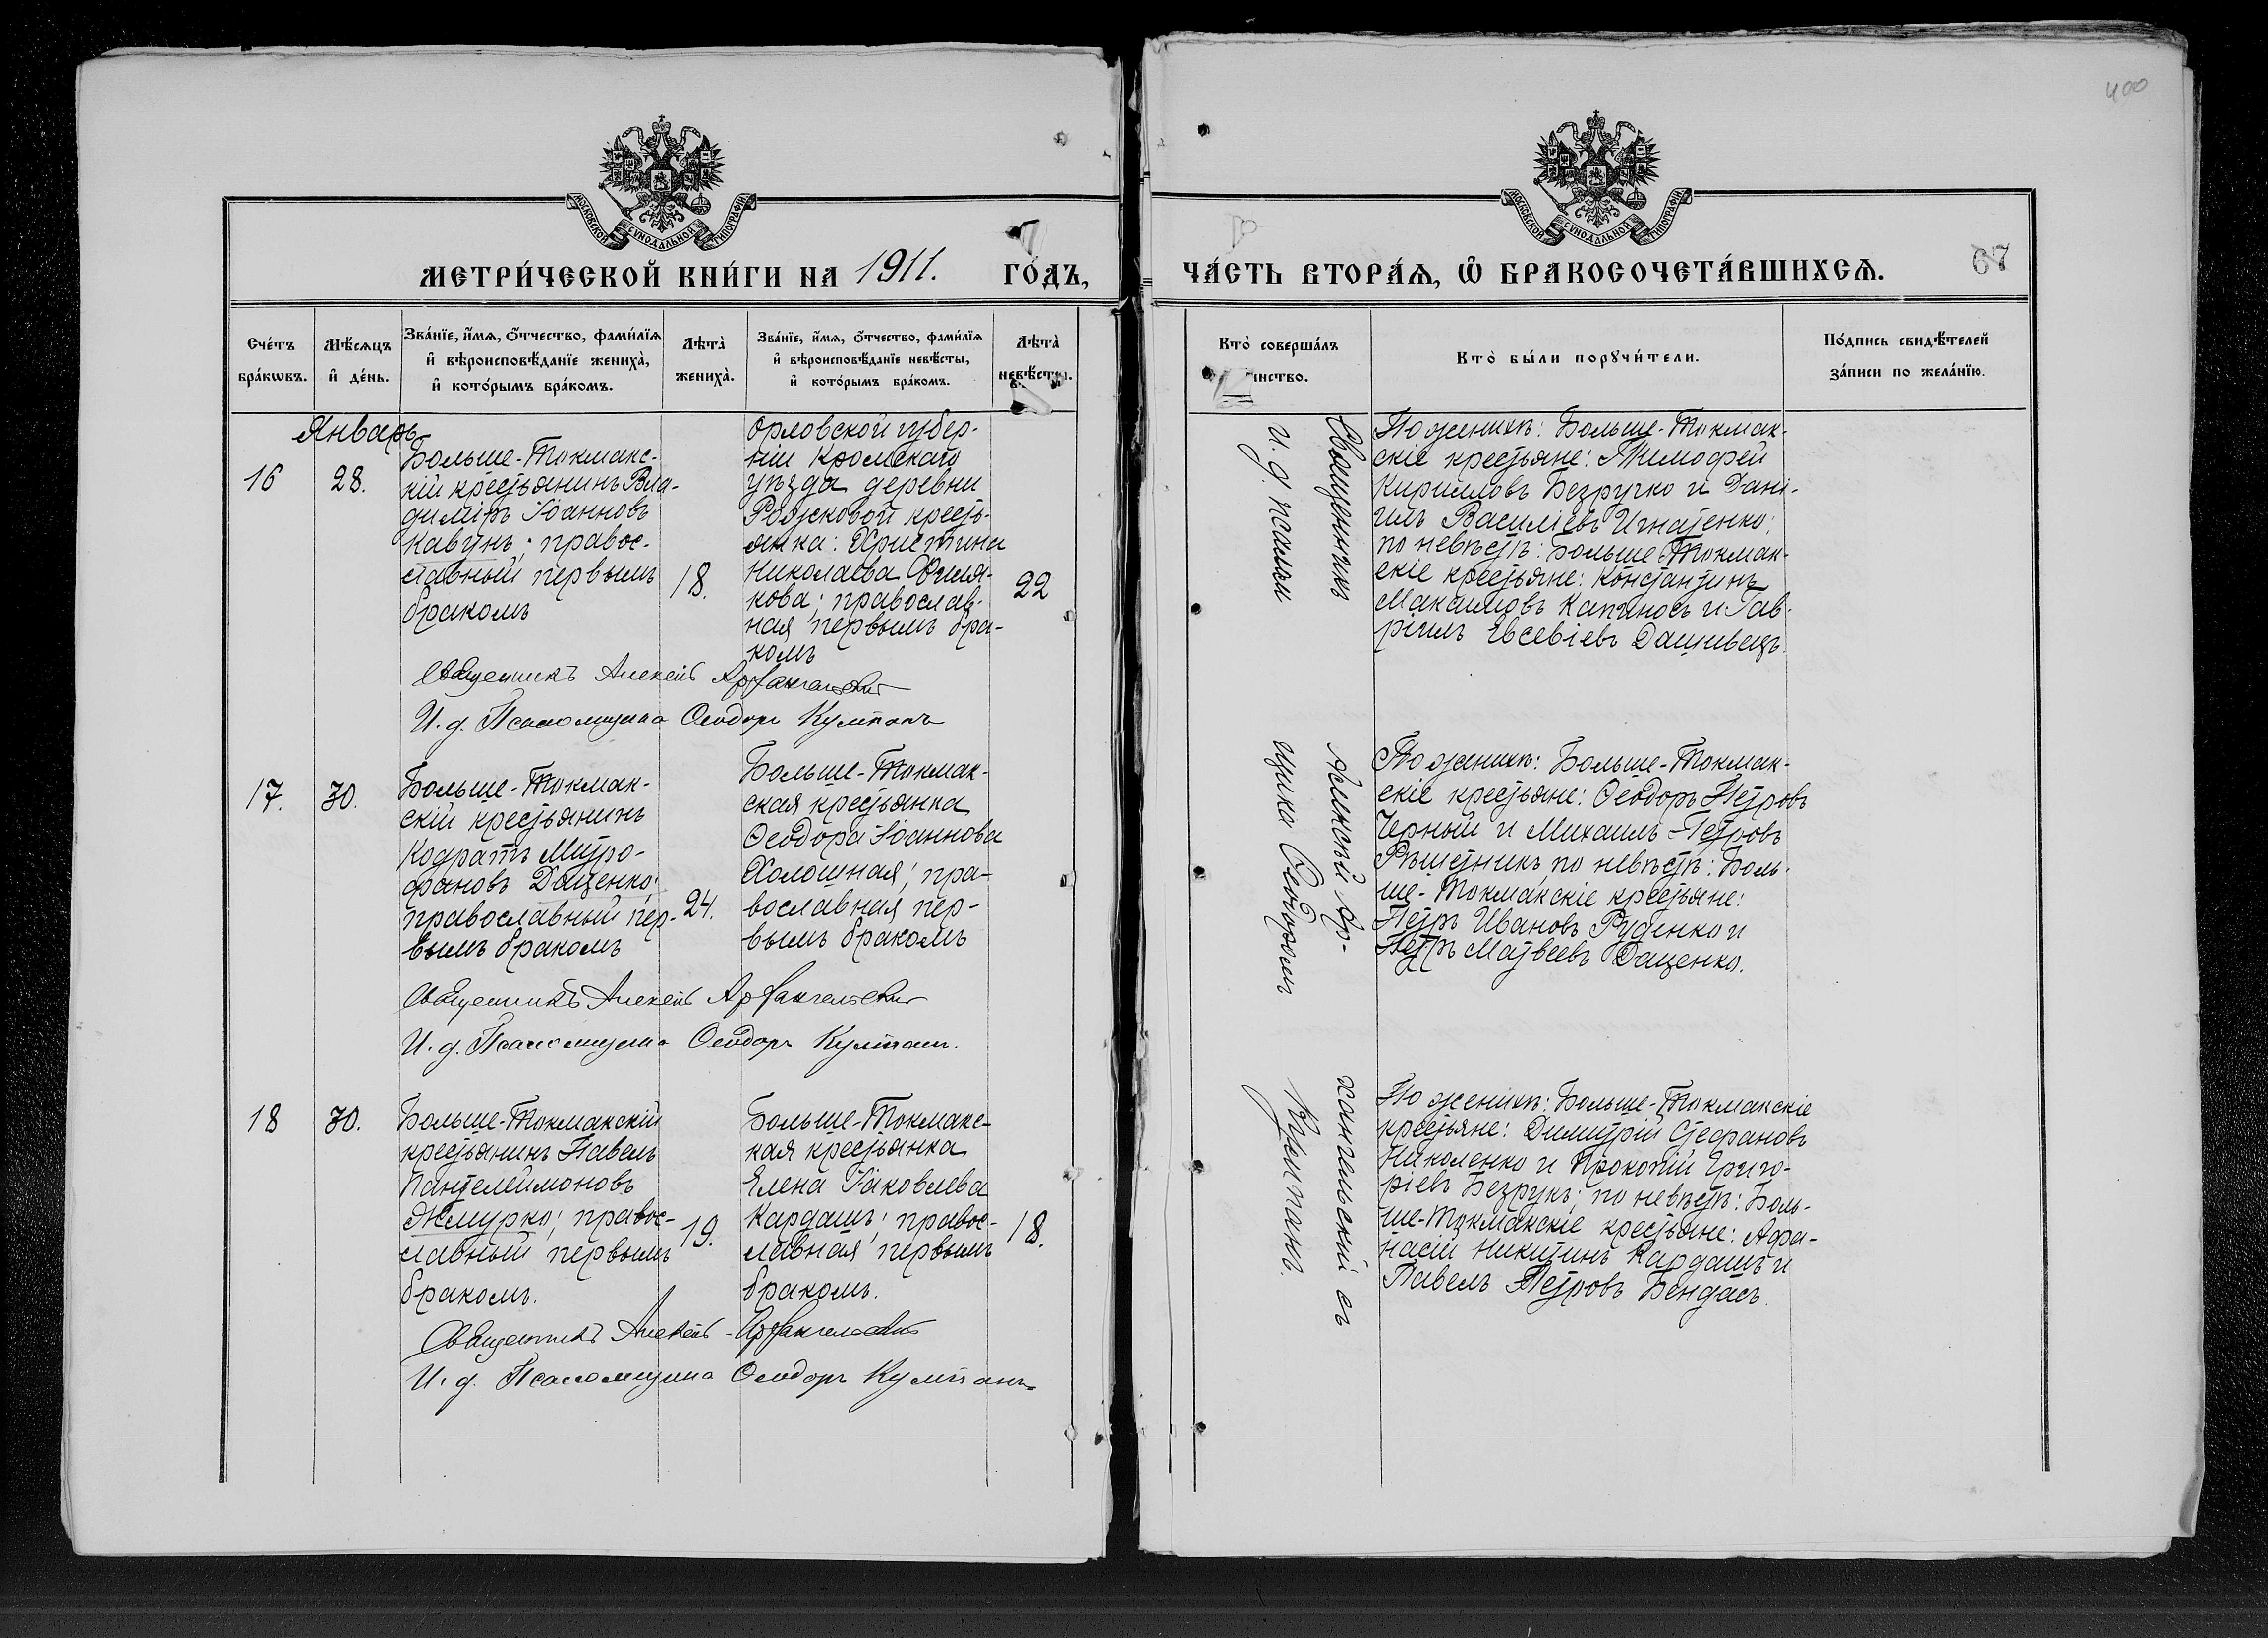 400
МОСКОВСКОЙ СѴНОДАЛЬНОЙ ТИПОГРАФІИ
МЕТРИ́ЧЕСКОЙ КНИ́ГИ НА 1911. ГО́ДЪ,
Сче́тъ бра́кѡвъ.
Мѣ́сяцъ и҆ де́нь.
Зва́нїе, и҆́мѧ, ѻ҆́тчество, фами́лїѧ и҆ вѣроисповѣ́данїе жениха̀, и҆ кото́рымъ бра́комъ.
Лѣта̀ жениха̀.
Зва́нїе, и҆́мѧ, ѻ҆́тчество, фами́лїѧ и҆ вѣроисповѣ́данїе невѣ́сты, и҆ кото́рымъ бра́комъ.
Лѣта̀ невѣ́сты.
Январь
16
28.
Больше-Токмакс-
кій крестьянинъ Вла-
димиръ Іоанновъ
Кавунъ; правос-
лавный первымъ
бракомъ
18.
Орловской губер-
ніи Кромскаго
уѣзда деревни
Рожковой кресть-
янка: Христина
Николаева
кова; православ-
ная первымъ бра-
комъ
22
Священникъ Алексій Архангельскій
И. д. Псаломщика Ѳеодоръ Кулпанъ
17.
30.
Больше-Токмак-
скій крестьянинъ
Кодратъ Митро-
фановъ Даценко;
православный пер-
вымъ бракомъ
24.
Больше-Токмак-
ская крестьянка
Ѳеодора Іоаннова
Холошная; пра-
вославная пер-
вымъ бракомъ
Священникъ Алексій Архангельскій
И. д. Псаломщика Ѳеодоръ Кулпанъ.
18
30.
Больше-Токмакскій
крестьянинъ Павелъ
Пантелеимоновъ
Жмурко; правос-
лавный первымъ
бракомъ.
19.
Больше-Токмакс-
кая крестьянка
Елена Іаковлева
Кардашъ; правос-
лавная первымъ
бракомъ.
18.
Священникъ Алексій Архангельскій
И. д. Псаломщика Ѳеодоръ Кулпанъ
МОСКОВСКОЙ СѴНОДАЛЬНОЙ ТИПОГРАФІИ
ЧА́СТЬ ВТОРА́Ѧ, Ѡ҆ БРАКОСОЧЕТА́ВШИХСѦ.
67
Кто̀ соверша́лъ инство.
Кто̀ бы́ли порꙋчи́тели.
По́дпись свидѣ́телей за́писи по жела́нїю.
Священникъ Алексѣй Ар-хангельскій съ
и. д. псалом щика Ѳеодоромъ Кулпано.
По женихѣ: Больше-Токмак-
скіе крестьяне: Тимофей
Кирилловъ Безручко и Дані-
илъ Василіевъ Игнатенко;
по невѣстѣ: Больше Токмак-
скіе крестьяне: Константинъ
Максимовъ Капиносъ и Гав-
ріилъ Евсевіевъ Дашивецъ.
По женихѣ: Больше-Токмак-
скіе крестьяне: Ѳеодоръ Петровъ
Черный и Михаилъ Петровъ
Рѣшетникъ по невѣстѣ: Боль-
ше-Токмакскіе крестьяне:
Петръ Ивановъ Руденко и
Петръ Матвеевъ Даценко.
По женихѣ: Больше-Токмакскіе
крестьяне: Димитрій Стефановъ
Николенко и Прокопій Григо-
ріевъ Безрукъ; по невѣстѣ: Боль-
ше-Токмакскіе крестьяне: Афа-
насій Никитинъ Кардашъ и
Павелъ Петровъ Бендасъ.